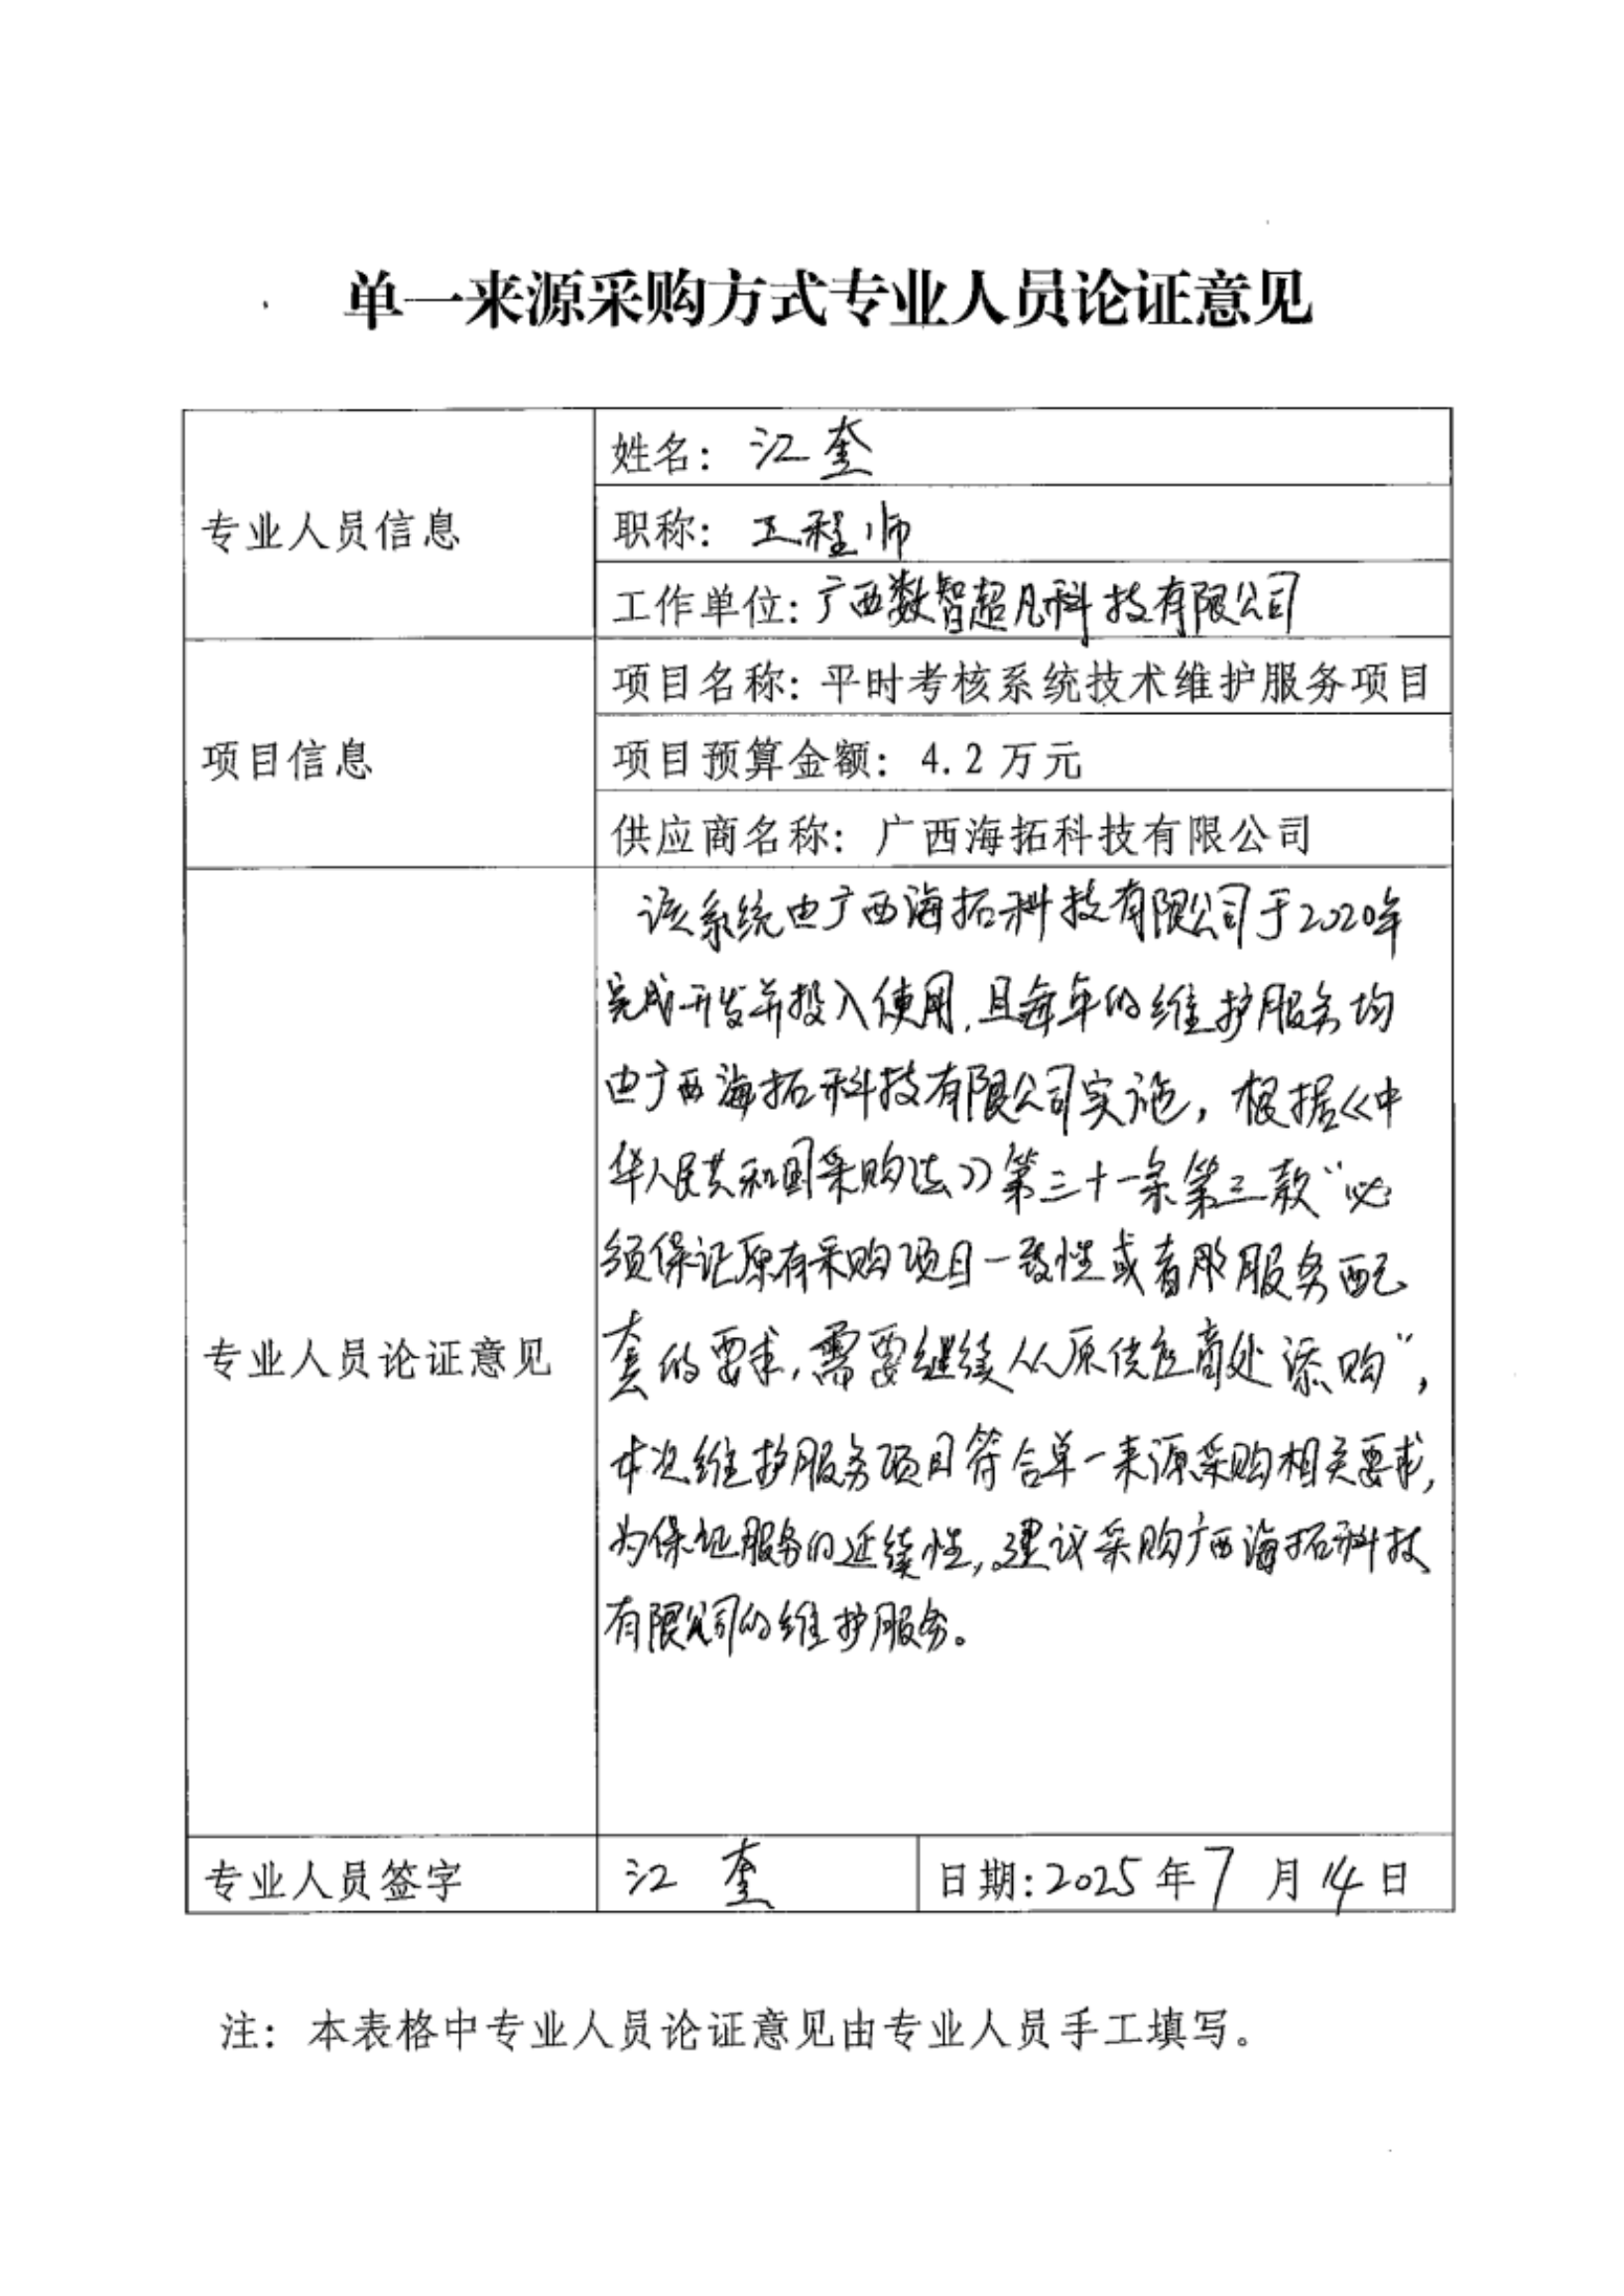 单一来源采购方式专业人员论证意见
专业人员信息
姓名：江奎
职称：工程师
工作单位：广西数智超凡科技有限公司
项目信息
项目名称：平时考核系统技术维护服务项目
项目预算金额：4.2万元
供应商名称：广西海拓科技有限公司
专业人员论证意见
该系统由广西海拓科技有限公司于2020年
完成开发并投入使用，且每年的维护服务均
由广西海拓科技有限公司实施，根据《中
华人民共和国采购法》第三十一条第三款“必
须保证原有采购项目一致性或者服务配
套的要求，需要继续从原供应商处添购”，
本次维护服务项目符合单一来源采购相关要求，
为保证服务的延续性，建议采购广西海拓科技
有限公司的维护服务。
专业人员签字
江奎
日期：2025年7月14日
注：本表格中专业人员论证意见由专业人员手工填写。